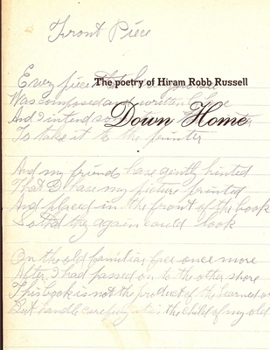 Front Piece
The poetry of Hiram Robb Russell
Down Home
Every piece that you see
Was composed and written
And I intend so
To take it to the printer
And my friends have gently hinted
That I have my picture printed
And placed in the front of the book
So that they again could look
On the old familiar face once more
After I had passed on to the other shore
This book is not the product of the learned
But handle carefully the child of my old